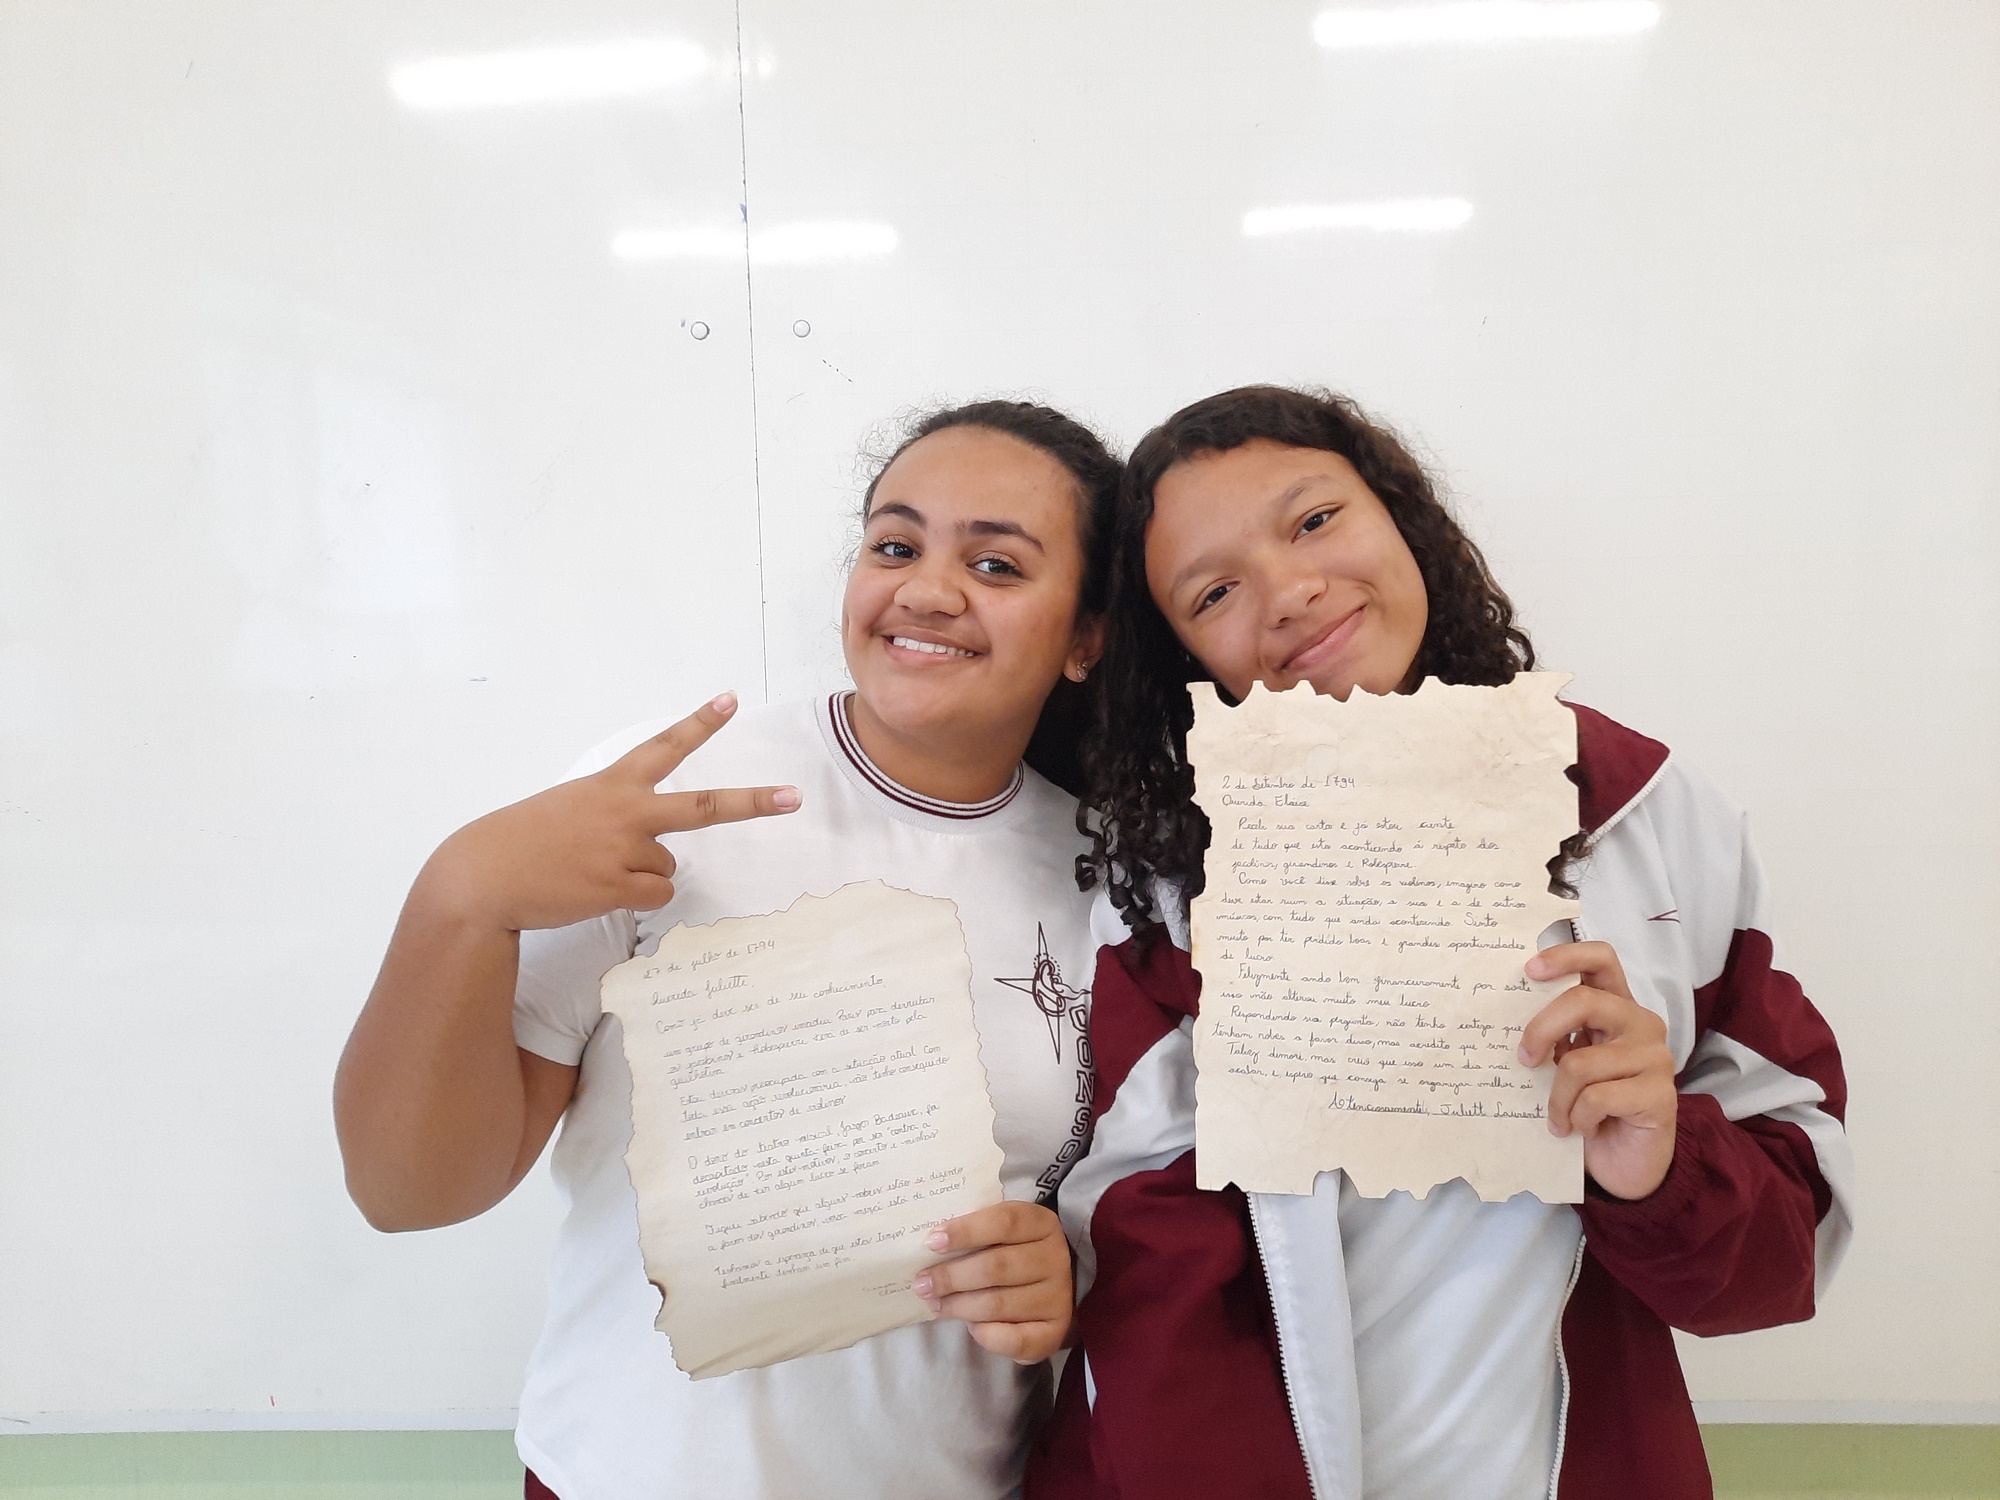 27 de julho de 1794
Querida Juliette,
Como já deve ser de seu conhecimento,
um grupo de girondinos invadiu Paris para derrubar
os jacobinos e Robespierre teve de ser morto pela
guilhotina
Estou deveras preocupada com a situação atual. Com
toda essa ação revolucionaria, não tenho conseguido
entrar em concertos de violinos
O dono do teatro musical, Badeaux, foi
decapitado nesta quinta-feira por ser "contra a
revolução". Por estes motivos, o concerto e minhas
chances de ter algum lucro se foram
Fiquei sabendo que alguns nobres estão se dizendo
a favor dos girondinos, você está de acordo?
Tenhamos a esperança de que estes tempos
finalmente tenham um fim.
CONSO
2 de Setembro de 1794
Querida Eloise
Recebi sua carta e já estou ciente
de tudo que esta acontecendo á respeito dos
jacobinos, girondinos e Robespierre.
Como você disse sobre os violinos, imagino como
deve estar ruim a situação, a sua e a de outros
músicos, com tudo que anda acontecendo. Sinto
muito por ter perdido boas e grandes oportunidades
de lucro.
Felizmente ando bem financeiramente por sorte
isso não alterou muito meu lucro
Respondendo sua pergunta, não tenho certeza que
tenham nobres a favor disso, mas acredito que sim.
Talvez demore, mas creio que isso um dia vai
acabar, e, espero que consiga se organizar melhor aí
Atenciosamente, Juliett Laurent